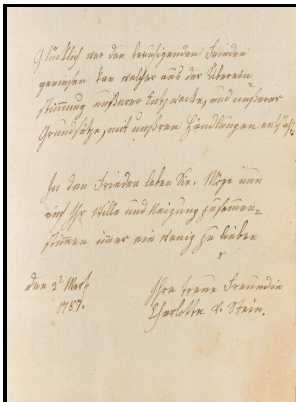 Glücklich wer den beruhigenden Frieden
geniessen kan welcher aus der Überein-
stimmung unßerer Entzwecke, und unßerer
Grundsätze, mit unßren Handlungen entsteht
In den Frieden leben Sie. Möge nun
auch Ihr Wille und Neigung zusammen-
stimmen immer ein wenig zu lieben
den 2t Mertz
1787.
Ihre treue Freundin
Charlotte v. Stein.